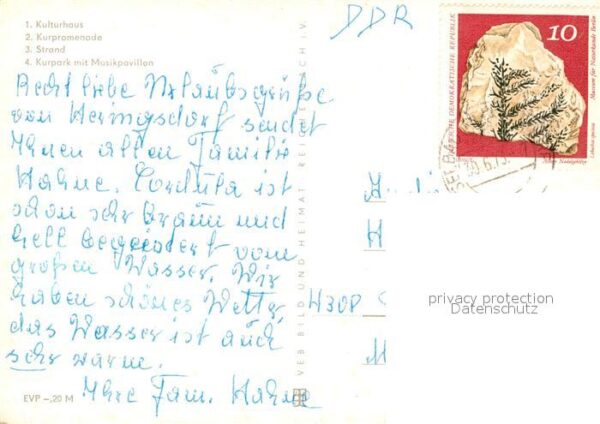 1. Kulturhaus
2. Kurpromenade
3. Strand
4. Kurpark mit Musikpavillon
Recht liebe Urlaubsgrüße
von Heringsdorf sendet
Ihnen allen Familie
Hahne. Cordula ist
schon sehr braun und
hell begeistert vom
großen Wasser. Wir
haben schönes Wetter,
das Wasser ist auch
sehr warm.
Ihre Fam. Hahne
EVP –,20 M
VEB BILD UND HEIMAT REICHENBACH i. V.
DDR
DEUTSCHE DEMOKRATISCHE REPUBLIK
10
Museum für Naturkunde Berlin
Lebachia speciosa
H
4308
privacy protection
Datenschutz
M